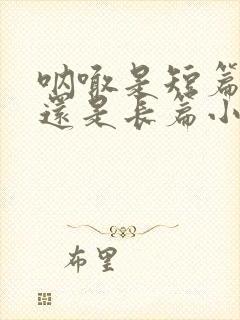 呐噉是短篇
還是長篇小
布里